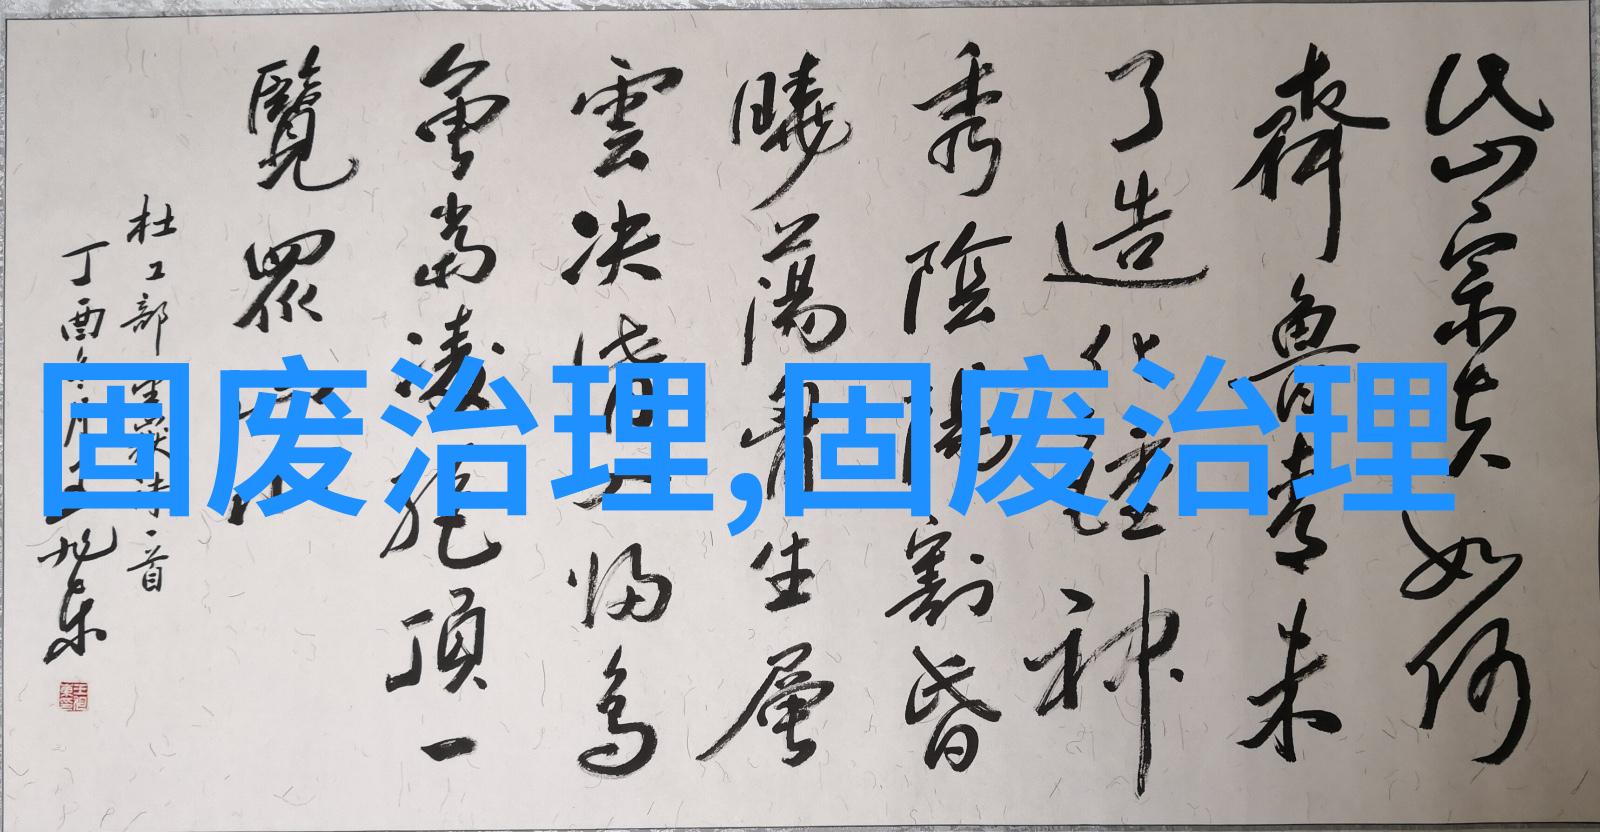 岱宗夫如何
齊魯青未
了造化鍾神
秀陰陽割昏
曉蕩胷生層
雲决眥入歸鳥
會當凌絕頂一
覽眾山小
杜工部望嶽詩一首
丁酉年月王旭东
固废治理,固废治理